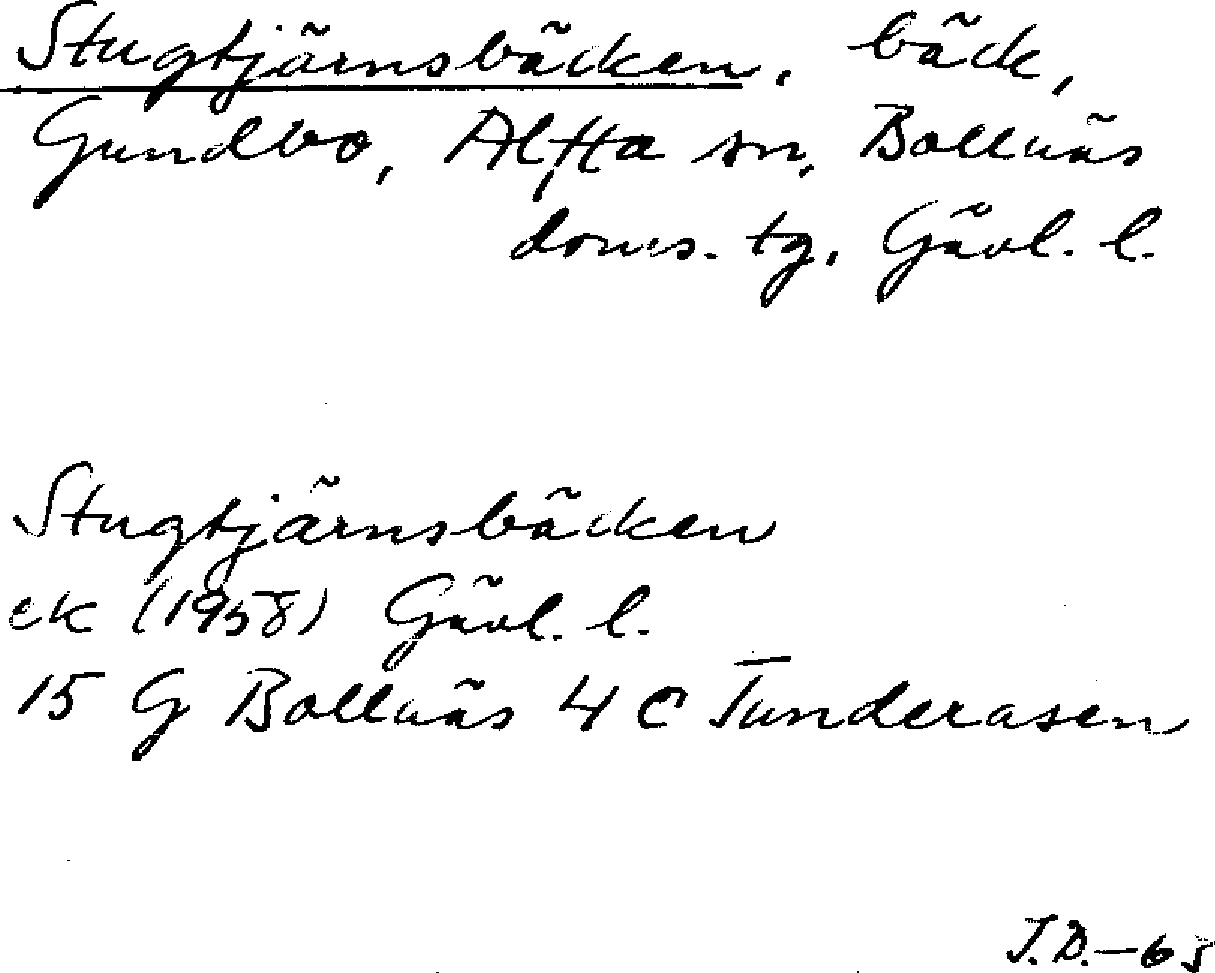 Stugtjärnsbäcken, bäck,
Gundbo, Alfta sn, Bollnäs
doms. tg, Gävl. l.
Stugtjärnsbäcken
ek (1958) Gävl. l.
15 G Bollnäs 4 C Tunderasen
J.D.-63